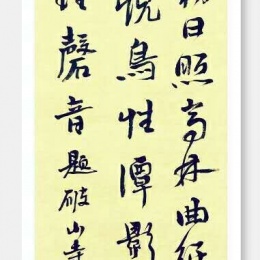 日照高林曲
悦鳥性潭影
磬音題破山寺